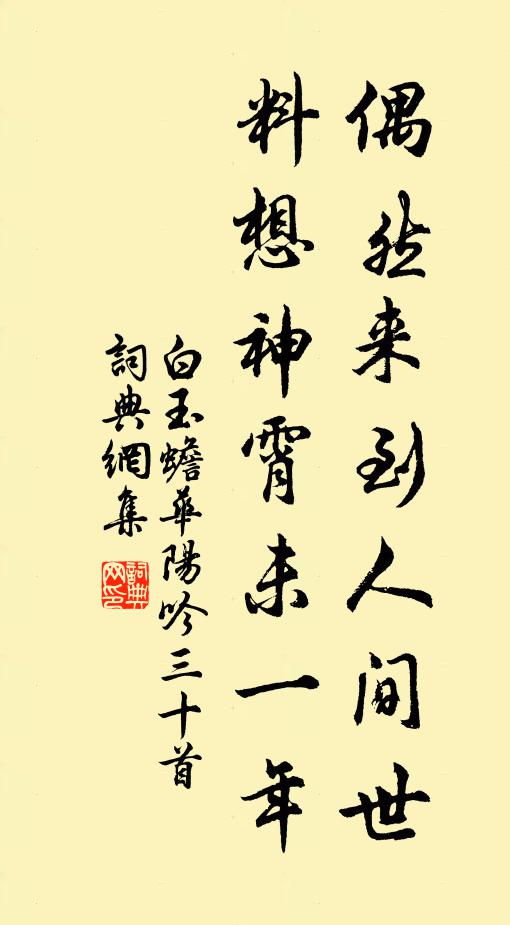 偶然来到人间世
料想神霄未一年
白玉蟾華陽吟三十首
詞典網集
詞典網印